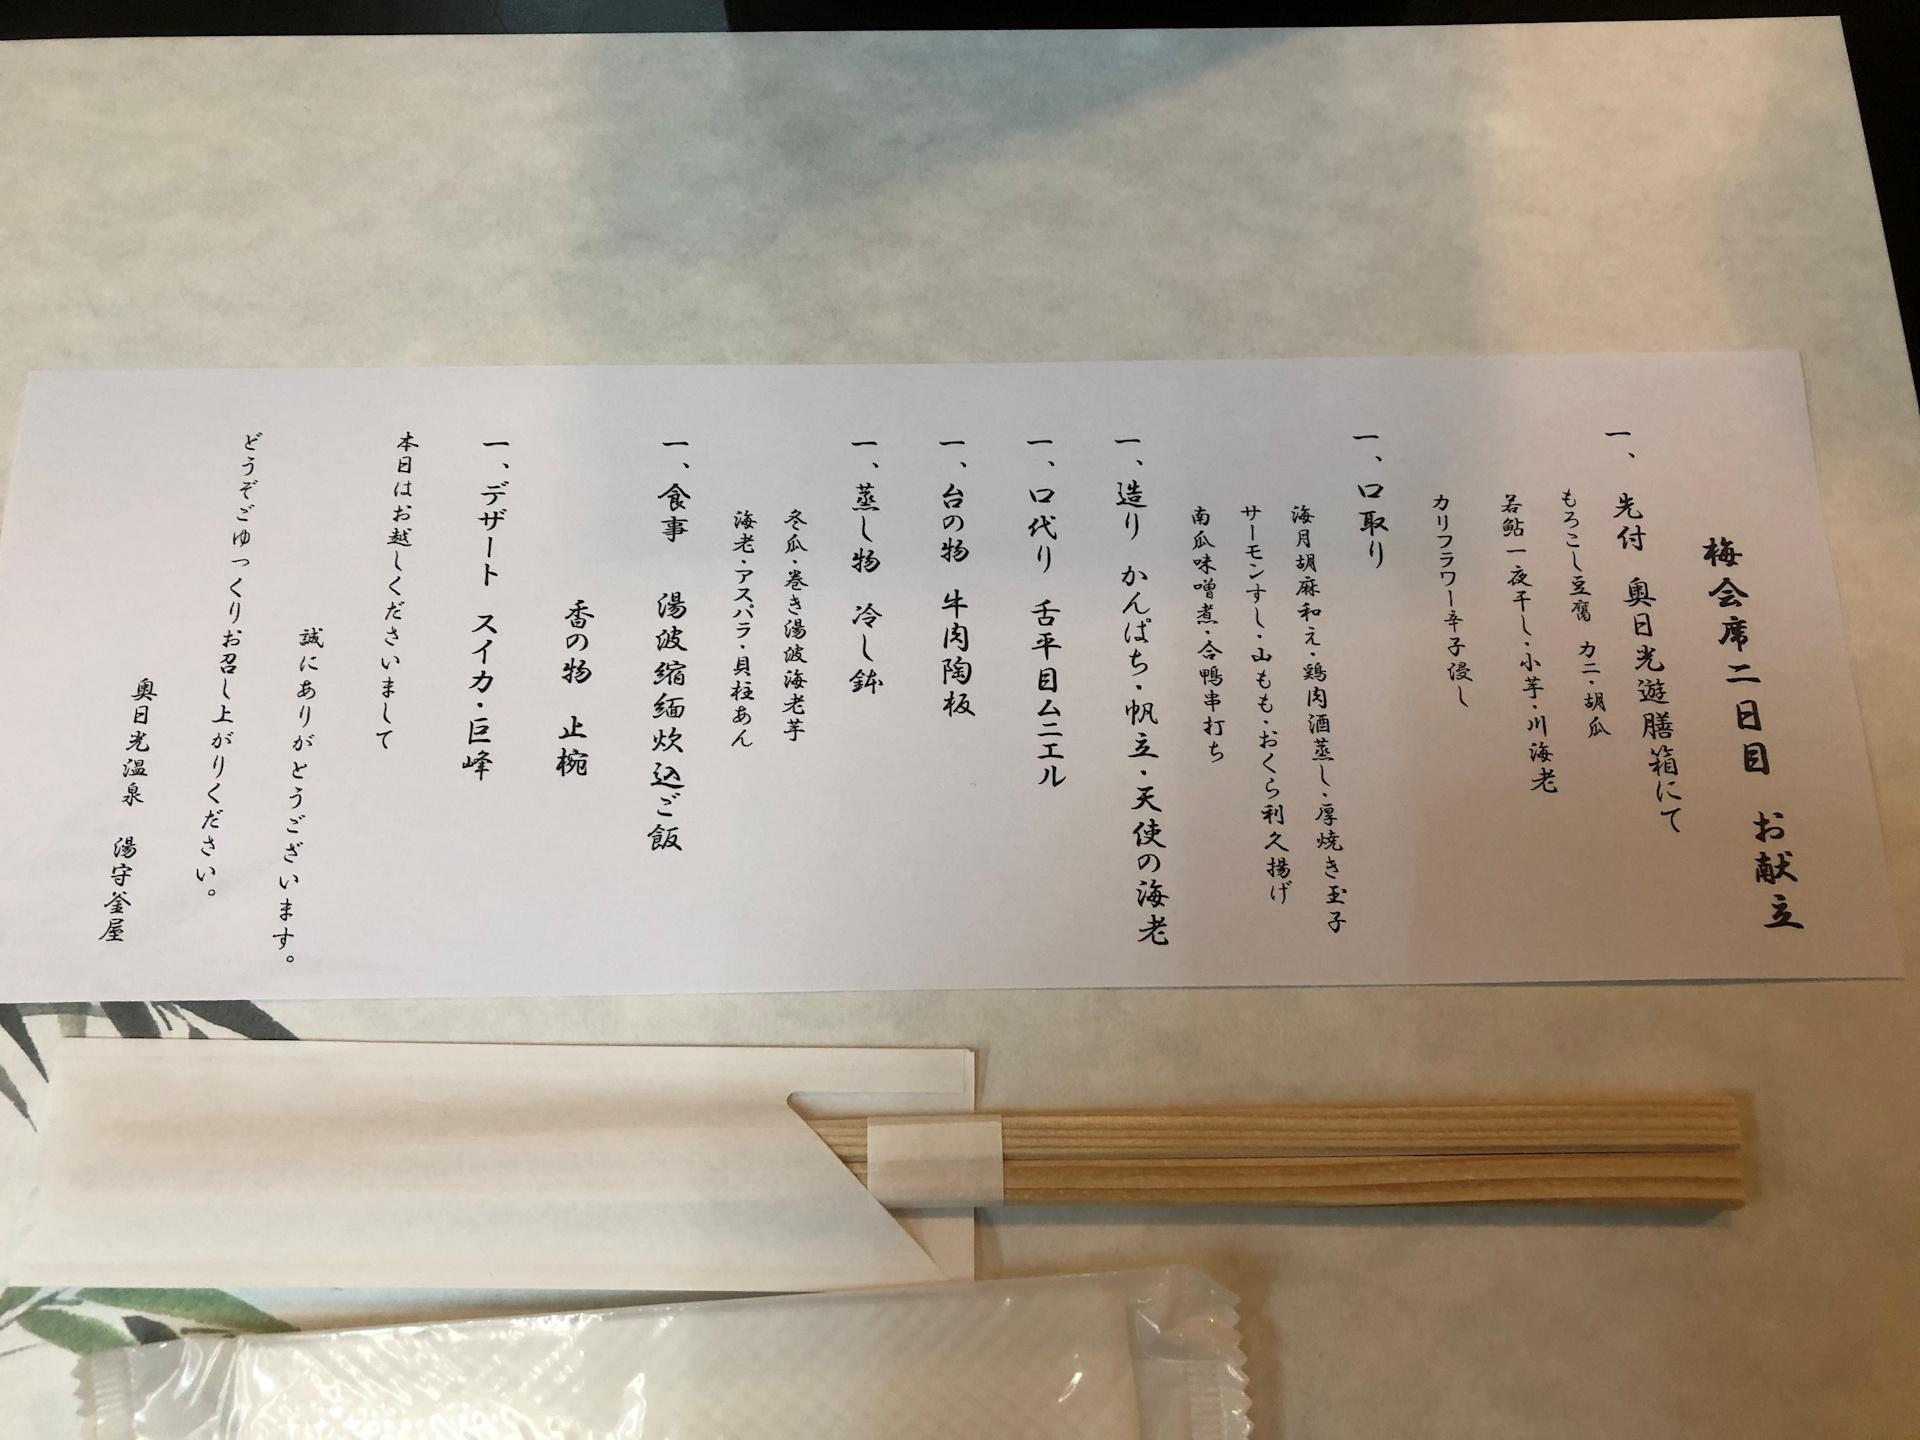 梅会席二日目　お献立
一、先付　奥日光遊膳箱にて
もろこし豆腐　カニ・胡瓜
若鮎一夜干し・小芋・川海老
カリフラワー辛子浸し
一、口取り
海月胡麻和え・鶏肉酒蒸し・厚焼き玉子
サーモンすし・山もも・おくら利久揚げ
南瓜味噌煮・合鴨串打ち
一、造り　かんぱち・帆立・天使の海老
一、口代り　舌平目ムニエル
一、台の物　牛肉陶板
一、蒸し物　冷し鉢
冬瓜・巻き湯波海老芋
海老・アスパラ・貝柱あん
一、食事　湯波縮緬炊込ご飯
香の物　止椀
一、デザート　スイカ・巨峰
本日はお越しくださいまして
誠にありがとうございます。
どうぞごゆっくりお召し上がりください。
奥日光温泉　湯守釜屋